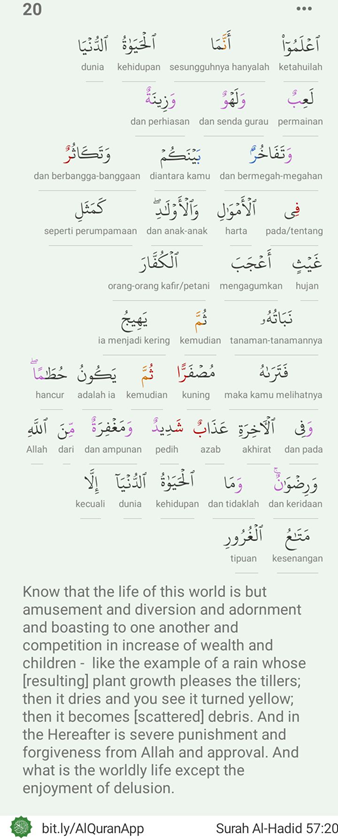 20 •••
ٱعْلَمُوٓا۟ أَنَّمَا ٱلْحَيَوٰةُ ٱلدُّنْيَا
ketahuilah sesungguhnya hanyalah kehidupan dunia
لَعِبٌ وَلَهْوٌ وَزِينَةٌ
permainan dan senda gurau dan perhiasan
وَتَفَاخُرٌۢ بَيْنَكُمْ وَتَكَاثُرٌ
dan bermegah-megahan diantara kamu dan berbangga-banggaan
فِى ٱلْأَمْوَٰلِ وَٱلْأَوْلَـٰدِ ۖ كَمَثَلِ
pada/tentang harta dan anak-anak seperti perumpamaan
غَيْثٍ أَعْجَبَ ٱلْكُفَّارَ
hujan mengagumkan orang-orang kafir/petani
نَبَاتُهُۥ ثُمَّ يَهِيجُ
tanaman-tanamannya kemudian ia menjadi kering
فَتَرَىٰهُ مُصْفَرًّا ثُمَّ يَكُونُ حُطَـٰمًا ۖ
maka kamu melihatnya kuning kemudian adalah ia hancur
وَفِى ٱلْـَٔاخِرَةِ عَذَابٌ شَدِيدٌ وَمَغْفِرَةٌ مِّنَ ٱللَّهِ
dan pada akhirat azab pedih dan ampunan dari Allah
وَرِضْوَٰنٌ ۚ وَمَا ٱلْحَيَوٰةُ ٱلدُّنْيَآ إِلَّا
dan keridaan dan tidaklah kehidupan dunia kecuali
مَتَـٰعُ ٱلْغُرُورِ
kesenangan tipuan
Know that the life of this world is but
amusement and diversion and adornment
and boasting to one another and
competition in increase of wealth and
children - like the example of a rain whose
[resulting] plant growth pleases the tillers;
then it dries and you see it turned yellow;
then it becomes [scattered] debris. And in
the Hereafter is severe punishment and
forgiveness from Allah and approval. And
what is the worldly life except the
enjoyment of delusion.
bit.ly/AlQuranApp Surah Al-Hadid 57:20